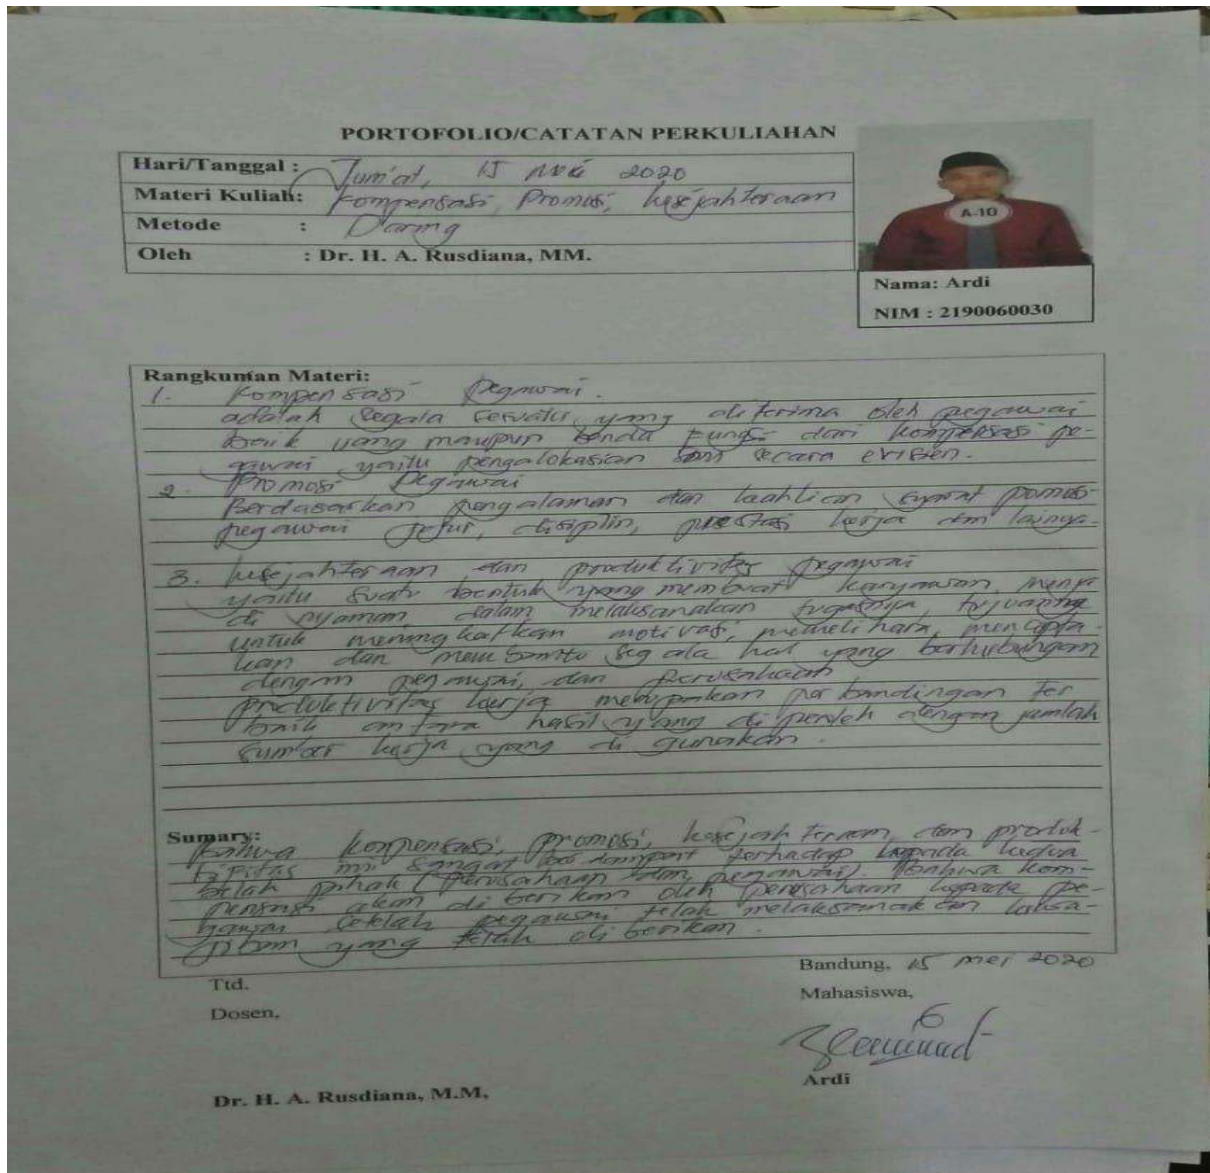 PORTOFOLIO/CATATAN PERKULIAHAN
Hari/Tanggal : Jum'at, 15 Mei 2020
Materi Kuliah: Kompensasi, Promosi, kesejahteraan
Metode : Daring
Oleh : Dr. H. A. Rusdiana, MM.
A-10
Nama: Ardi
NIM : 2190060030
Rangkuman Materi:
1. Kompensasi pegawai.
adalah segala sesuatu yang diterima oleh pegawai
baik uang maupun benda fungsi dari kompensasi pe-
gawai yaitu pengalokasian secara
2. Promosi Pegawai
Berdasarkan pengalaman dan keahlian syarat pomosi
pegawai jujur, disiplin, prestasi kerja dan lainya.
3. kesejahteraan dan produktivitas pegawai
yaitu suatu bentuk yang membuat karyawan menja
di nyaman dalam melaksanakan tugasnya, tujuannya
untuk meningkatkan motivasi, memelihara, mencipta-
kan dan membantu segala hal yang berhubungan
dengan pegawai, dan perusahaan
produktivitas kerja merupakan perbandingan ter
baik antara hasil yang di peroleh dengan jumlah
sumber kerja yang di gunakan.
Sumary:
Bahwa kompensasi, promosi, kesejahteraan dan produk-
tifitas ini sangat berdampat terhadap kepada kedua
belah pihak (perusahaan dan pegawai). Bahwa kom-
pensasi akan di berikan oleh perusahaan kepada pe-
setelah pegawai telah melaksanakan
yang telah di berikan.
Bandung, 15 mei 2020
Ttd.
Mahasiswa,
Dosen,
Ardi
Dr. H. A. Rusdiana, M.M,